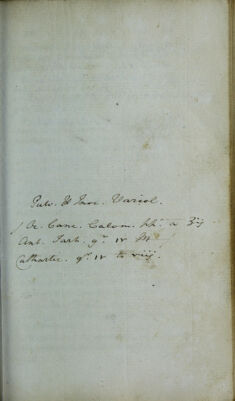 Pulv. & Inoc. Variol.
Oc. Canc. Calom. āā a ʒij
Ant. Tart. gr. iv M
Cathartic. gr. iv to viij.